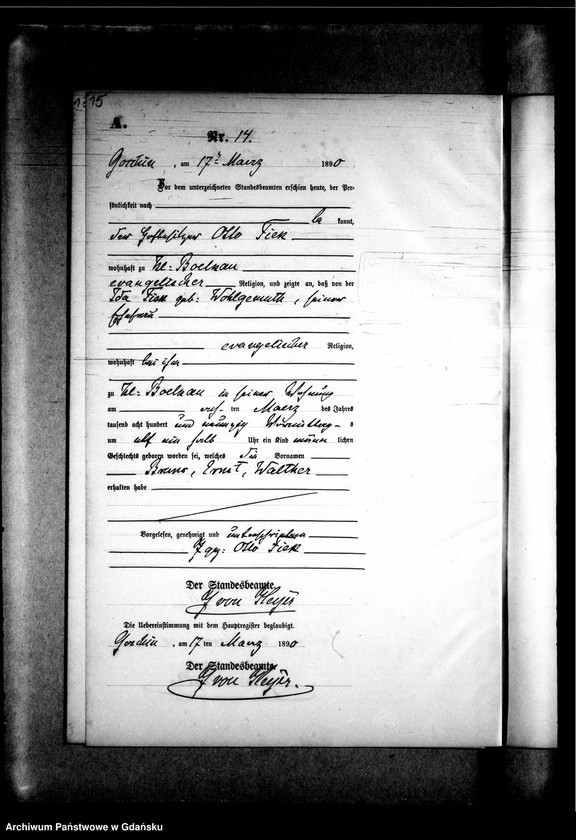 A.
Nr. 14.
am 17ten Maerz 1890
Vor dem unterzeichneten Standesbeamten erschien heute, der Per-
sönlichkeit nach
be kannt,
der Hofbesitzer Otto Fiek
wohnhaft zu Kl: Boelkau
evangelischer Religion, und zeigte an, daß von der
Ida Fiek geb: Wohlgemuth, seiner
Ehefrau
evangelischer Religion,
wohnhaft bei ihm
zu Kl: Boelkau in seiner Wohnung
am ten Maerz des Jahres
tausend acht hundert und neunzig Vormittag- s
um elf ein halb Uhr ein Kind männ lichen
Geschlechts geboren worden sei, welches die Vornamen
Bruno, Ernst, Walther
erhalten habe
Vorgelesen, genehmigt und unterschrieben
gez: Otto Fiek
Der Standesbeamte.
von Heyer
Die Uebereinstimmung mit dem Hauptregister beglaubigt.
am 17 ten Maerz 1890
Der Standesbeamte.
von Heyer.
Archiwum Państwowe w Gdańsku